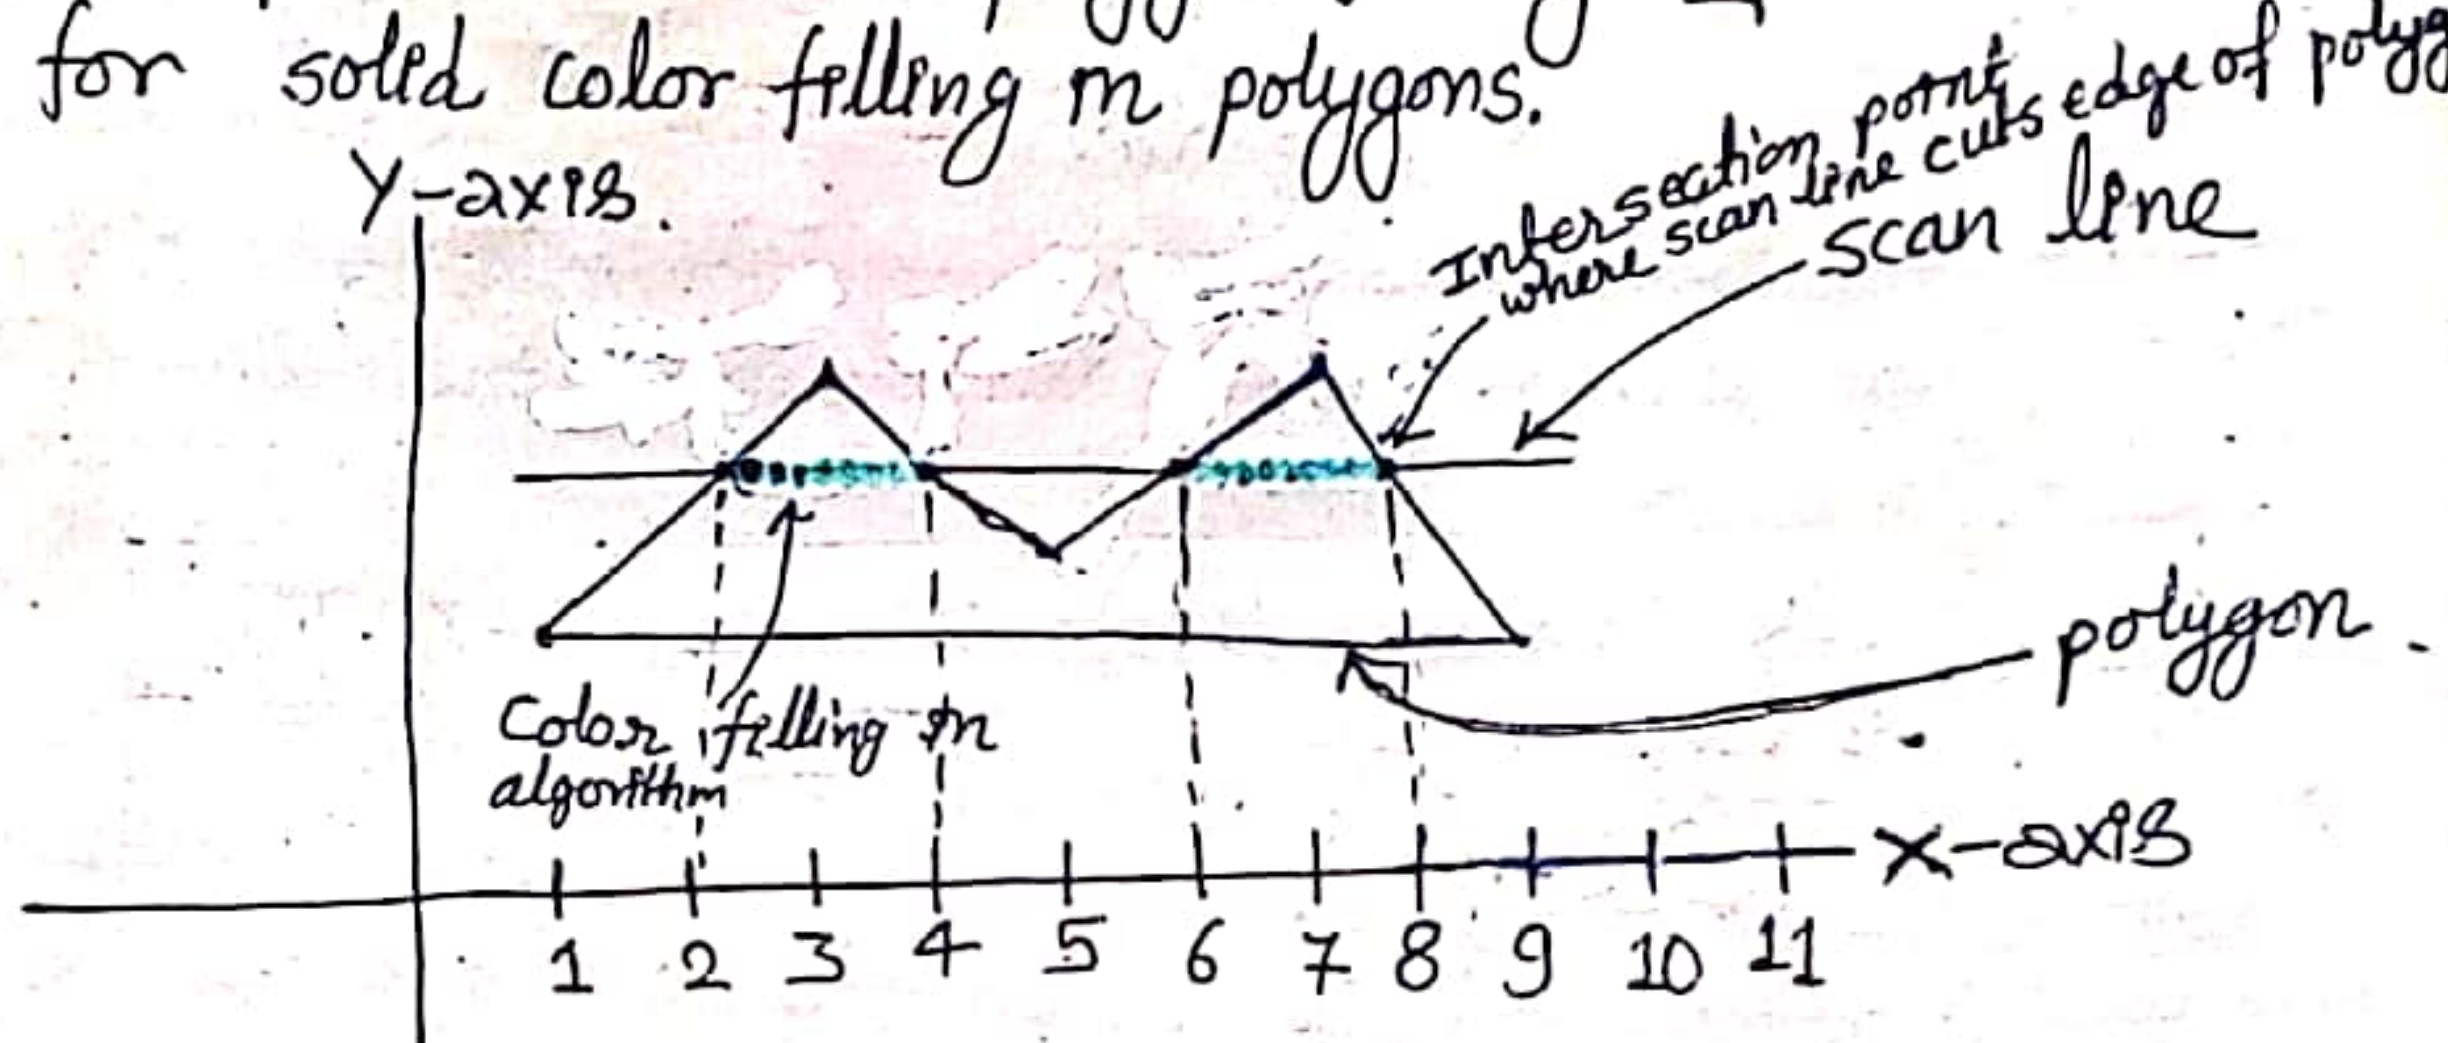 for solid color filling in polygons.
Y-axis.
Intersection point
where scan line cuts edge of
scan line
polygon.
Color filling in
algorithm
X-axis
1 2 3 4 5 6 7 8 9 10 11